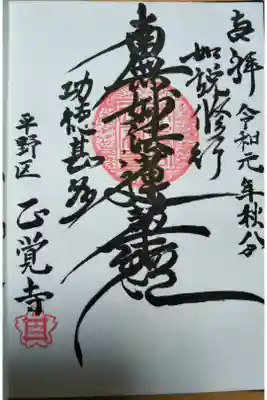 奉拝
令和元年秋分
如説修行
南無妙法蓮華経
功徳甚多
平野区
正覚寺